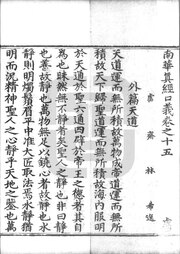 南華真經口義卷之十五
鬳齋 林 希逸
外篇天道
天道運而無所積故萬物成帝道運而無所
積故天下歸聖道運而無所積故海內服明
於天通於聖六通四辟於帝王之德者其自
為也昧然無不靜者矣聖人之靜也非曰靜
也善故靜也萬物無足以鐃心者故靜也水
靜則明燭鬚眉平中准大匠取法焉水靜猶
明而況精神聖人之心靜乎天地之鑒也萬